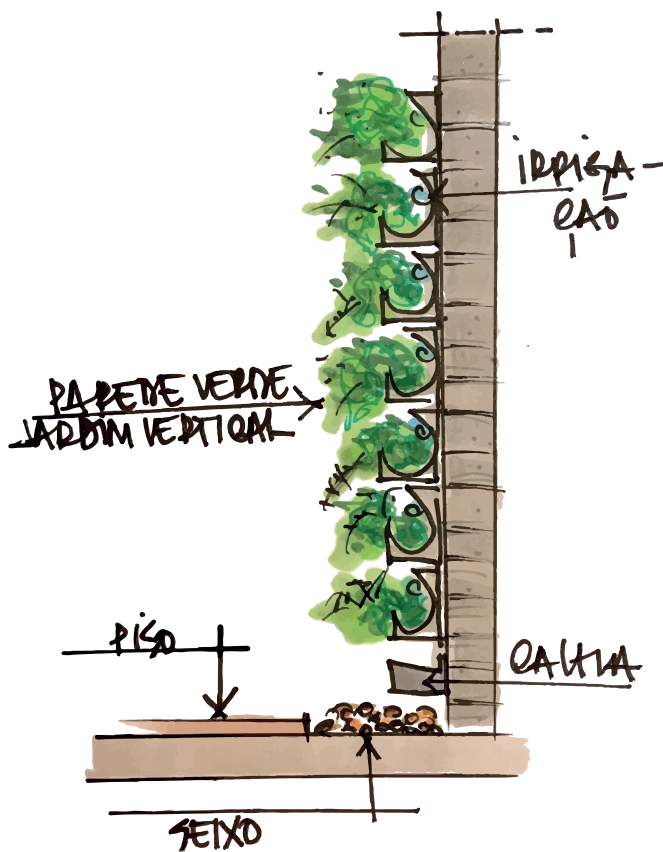 IRRIGA-
ÇÃO
PAREDE VERDE
JARDIM VERTICAL
PISO
CALHA
SEIXO